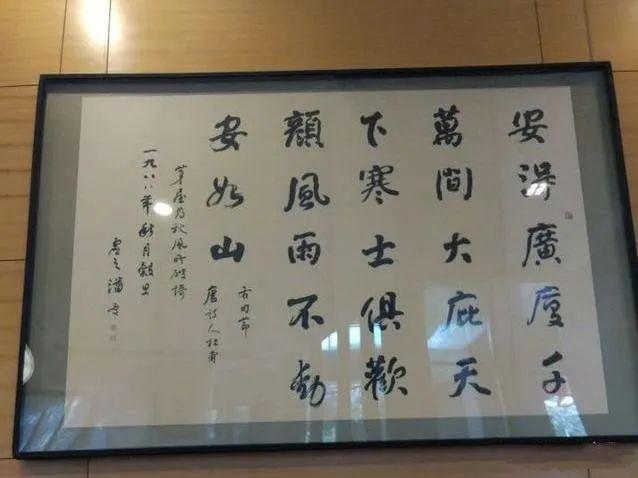 安得廣廈千
萬間大庇天
下寒士俱歡
顏風雨不動
安如山
右句節
唐詩人杜甫
茅屋為秋風所破詩
一九八八年秋月穀旦
虛之潘受